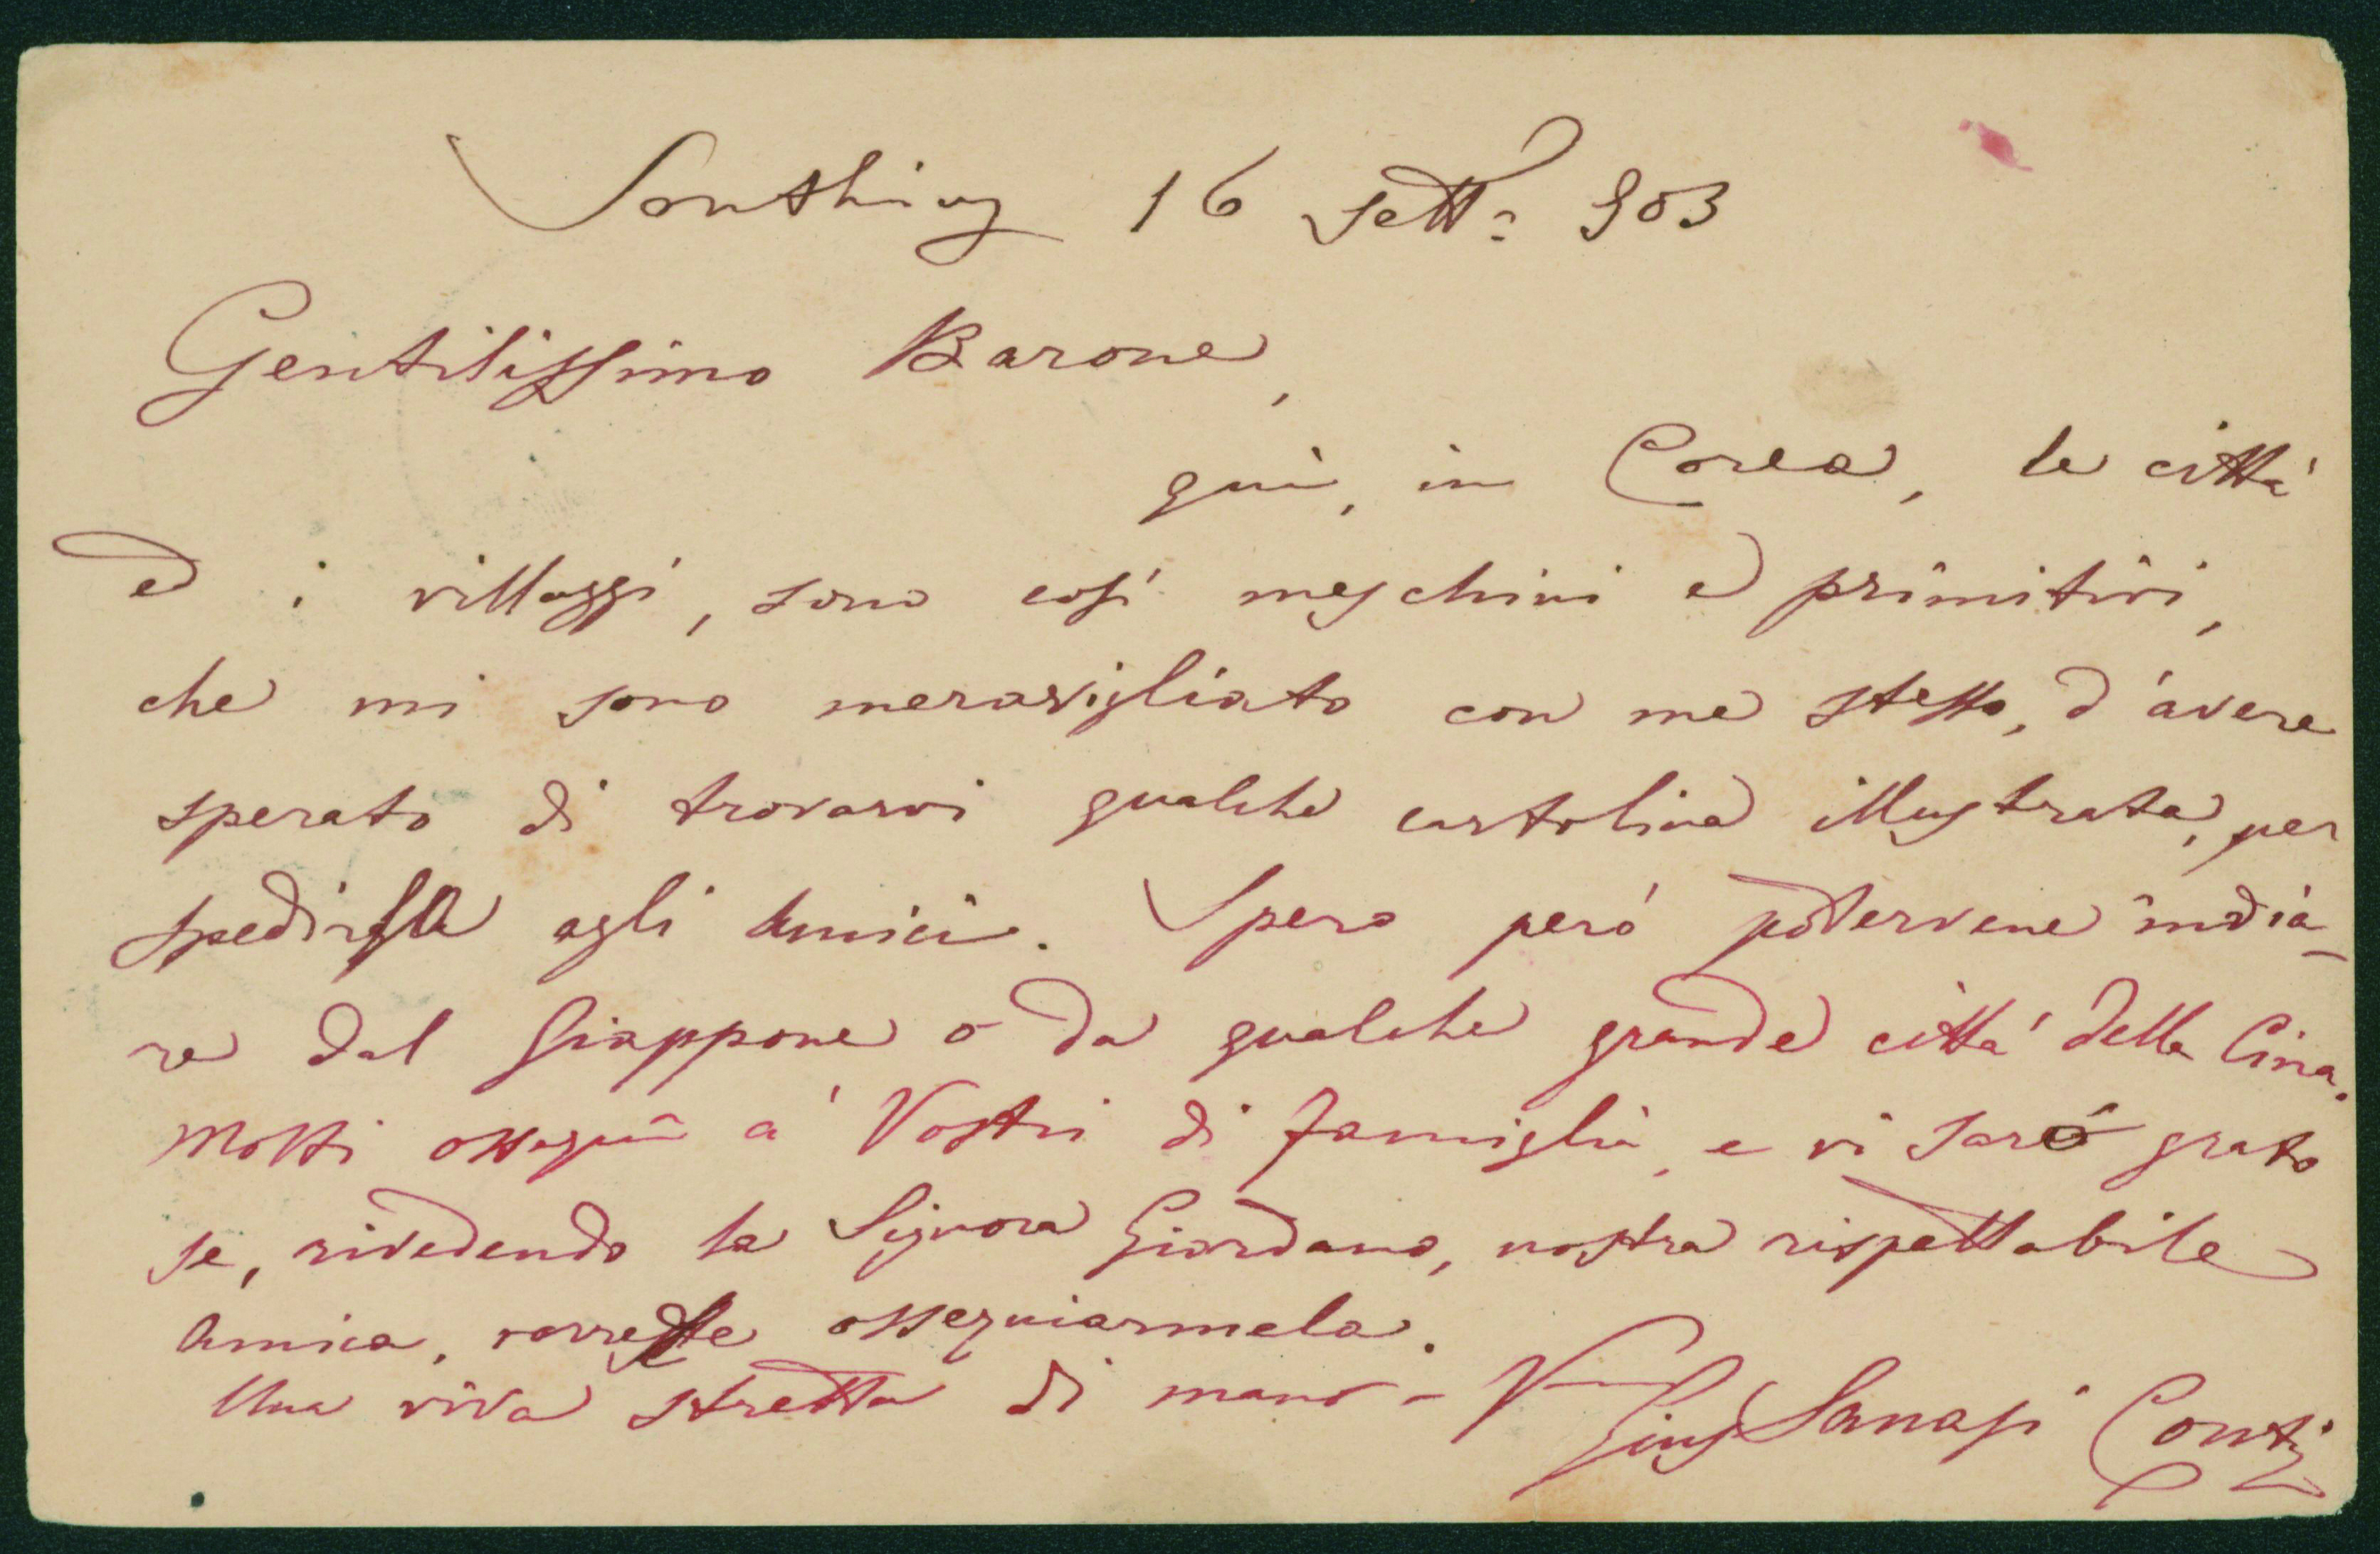 Sonthing 16 Sett. 903
Gentilissimo Barone,
qui, in Corea, le città
ed i villaggi, sono così meschini e primitivi,
che mi sono meravigliato con me stesso, d'avere
sperato di trovarvi qualche cartolina illustrata, per
spedirla agli Amici. Spero però potervene india-
re dal Giappone o da qualche grande città della Cina.
Molti ossequii a' Vostri di famiglia, e vi sarò grato
se, rivedendo la Signora Giordano, nostra rispettabile
Amica, vorreste ossequiarmela.
Una viva stretta di mano - V
Gius Sanasi Conti